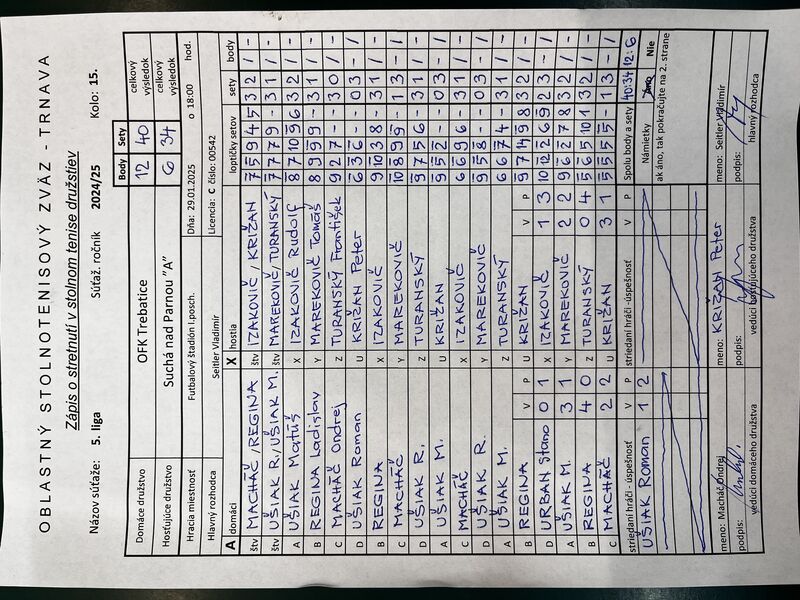 OBLASTNÝ STOLNOTENISOVÝ ZVÄZ - TRNAVA
Zápis o stretnutí v stolnom tenise družstiev
Názov súťaže: 5. liga Súťaž. ročník 2024/25 Kolo: 15.
Body Sety celkový výsledok
Domáce družstvo OFK Trebatice 12 40 celkový výsledok
Hosťujúce družstvo Suchá nad Parnou "A" 6 34
Hracia miestnosť Futbalový štadión I.posch. Dňa: 29.01.2025 o 18:00 hod.
Hlavný rozhodca Seitler Vladimír Licencia: C číslo: 00542
A domáci X hostia loptičky setov sety body
štv MACHÁČ/REGINA štv IZAKOVIČ/KRIŽAN 7 5 9 4 5 3 2 / -
štv UŠIAK R./UŠIAK M. štv MAREKOVIČ/TURANSKÝ 7 7 7 9 - 3 1 / -
A UŠIAK Matúš X IZAKOVIČ Rudolf 8 7 10 9 6 3 2 / -
B REGINA Ladislav Y MAREKOVIČ Tomáš 8 9 9 9 - 3 1 / -
C MACHÁČ Ondrej Z TURANSKÝ František 9 2 7 - - 3 0 / -
D UŠIAK Roman U KRIŽAN Peter 6 3 6 - - 0 3 - /
B REGINA X IZAKOVIČ 9 10 3 8 - 3 1 / -
C MACHÁČ Y MAREKOVIČ 10 8 9 9 - 1 3 - /
D UŠIAK R. Z TURANSKÝ 9 7 5 6 - 3 1 / -
A UŠIAK M. U KRIŽAN 9 5 2 - - 0 3 - /
C MACHÁČ X IZAKOVIČ 6 6 9 6 - 3 1 / -
D UŠIAK R. Y MAREKOVIČ 9 5 8 - - 0 3 - /
A UŠIAK M. Z TURANSKÝ 6 6 7 4 - 3 1 / -
B REGINA V P U KRIŽAN V P 9 7 14 9 8 3 2 / -
D URBAN Stano 0 1 X IZAKOVIČ 1 3 10 12 2 6 9 2 3 - /
A UŠIAK M. 3 1 Y MAREKOVIČ 2 2 9 6 2 7 8 3 2 / -
B REGINA 4 0 Z TURANSKÝ 0 4 5 6 5 10 1 3 2 / -
C MACHÁČ 2 2 U KRIŽAN 3 1 5 5 5 5 - 1 3 - /
striedaní hráči -úspešnosť V P striedaní hráči -úspešnosť V P Spolu body a sety 40:34 12:6
UŠIAK ROMAN 1 2 Námietky Áno Nie
ak áno, tak pokračujte na 2. strane
meno: Macháč Ondrej meno: KRIŽAN Peter meno: Seitler Vladimír
podpis: podpis: podpis:
vedúci domáceho družstva vedúci hosťujúceho družstva hlavný rozhodca